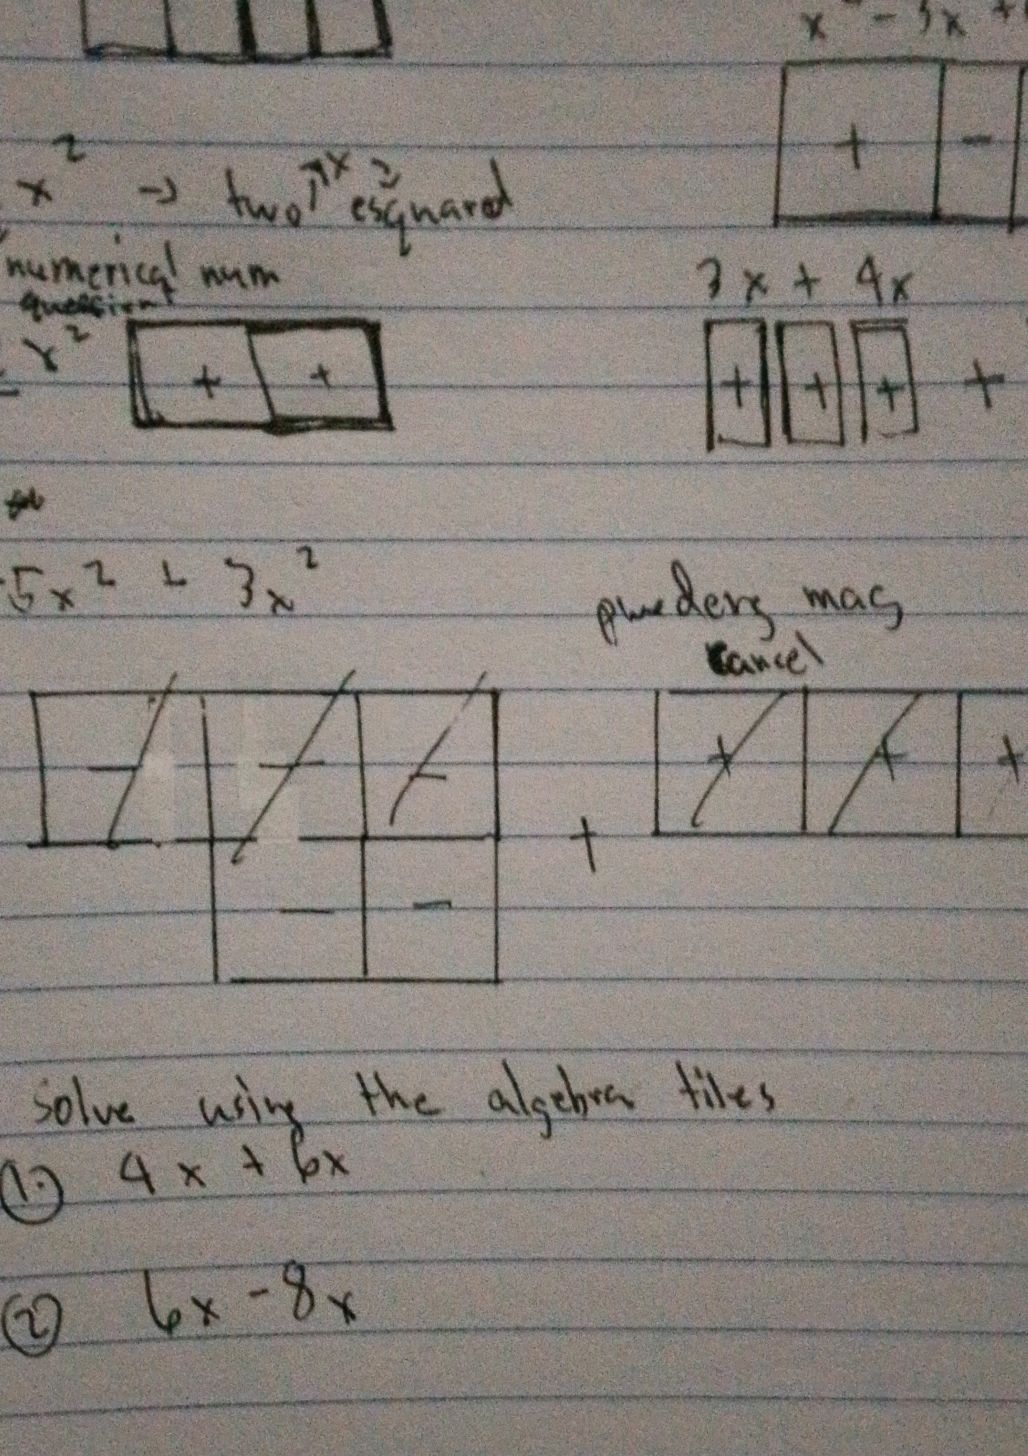 x² - 3x +
+ -
x² → two x esquared
numerical num
x² + +
3x + 4x
+ + + +
-5x² + 3x²
puedeng mag
cancel
- - - + + + +
- -
solve using the algebra tiles
1. 4x + 6x
2 6x - 8x